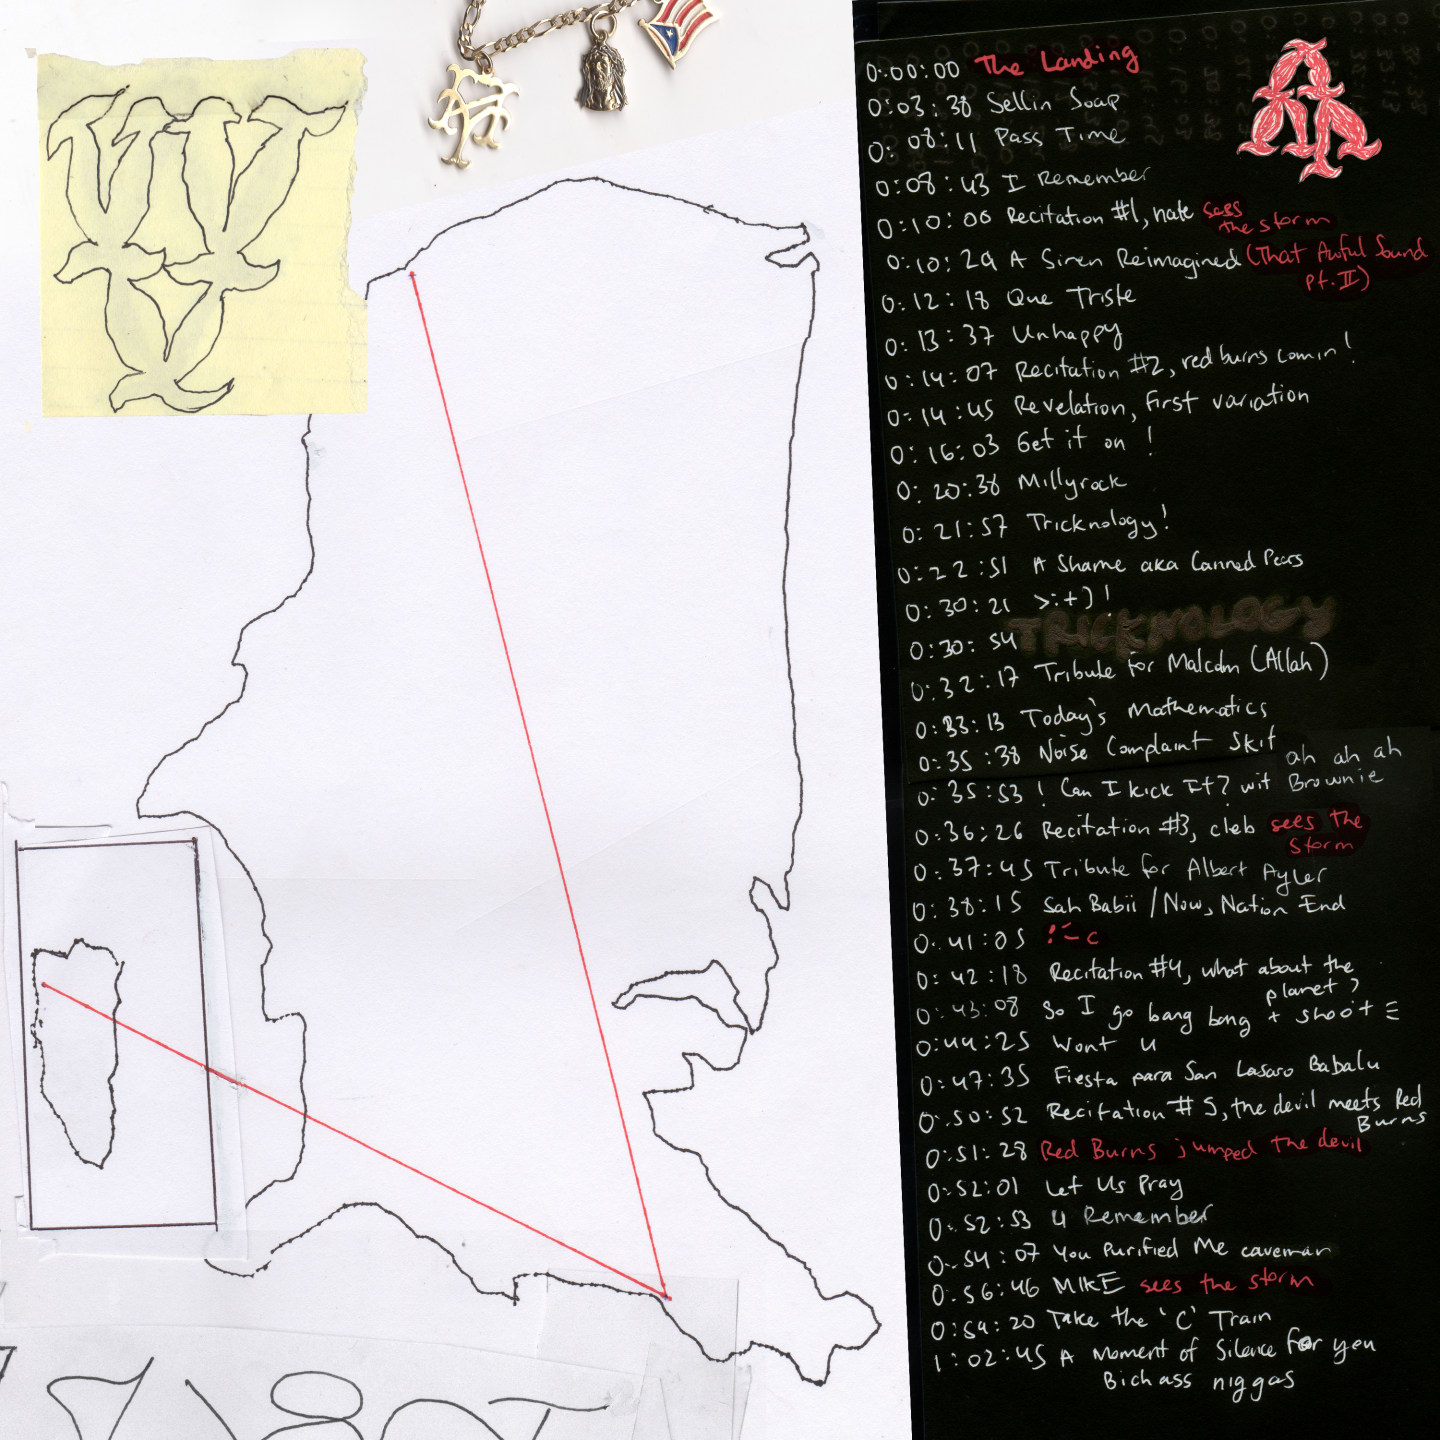 0:00:00 The Landing
0:03:38 Sellin Soap
0:08:11 Pass Time
0:08:43 I Remember
0:10:00 Recitation #1, nate sees
the storm
0:10:29 A Siren Reimagined (That Awful Sound
pt. II)
0:12:18 Que Triste
0:13:37 Unhappy
0:14:07 Recitation #2, red burns comin!
0:14:45 Revelation, First variation
0:16:03 Get it on!
0:20:38 Millyrock
0:21:57 Tricknology!
0:22:51 A Shame aka Canned Pears
0:30:21 >:+)!
0:30:54 TRICKNOLOGY
0:32:17 Tribute for Malcolm (Allah)
0:33:13 Today's Mathematics
0:35:38 Noise Complaint Skit
ah ah ah
0:35:53 ! Can I kick It? wit Brownie
0:36:26 Recitation #3, cleb sees the
storm
0:37:45 Tribute for Albert Ayler
0:38:15 Sah Babii / Now, Nation End
0:41:05
0:42:18 Recitation #4, what about the
planet?
0:43:08 So I go bang bang + shoot
0:44:25 Wont U
0:47:35 Fiesta para San Lasaro Babalu
0:50:52 Recitation #5, the devil meets Red
Burns
0:51:28 Red Burns jumped the devil
0:52:01 Let Us Pray
0:52:53 U Remember
0:54:07 You Purified Me caveman
0:56:46 MIKE sees the storm
0:59:20 Take the 'C' Train
1:02:45 A Moment of Silence For you
Bichass niggas